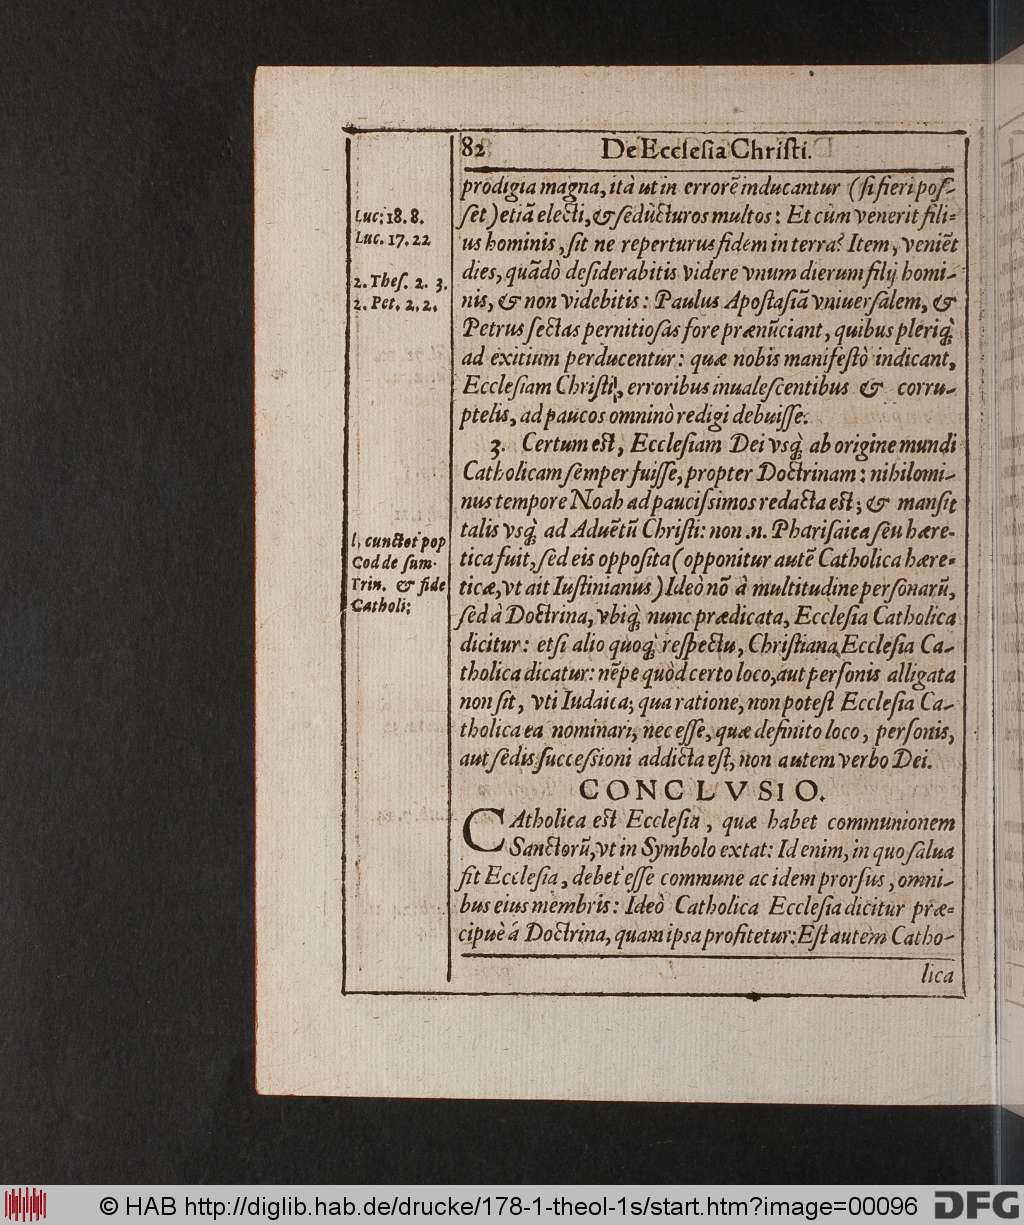 82 De Ecclesia Christi.
prodigia magna, ità ut in errorē inducantur (si fieri pos-
sēt) etiā electi, & sedùcturos multos: Et cùm venerit fili-
us hominis, sit ne reperturus fidem in terra? Item, veniēt
dies, quādò desiderabitis videre vnum dierum filij homi-
nis, & non videbitis: Paulus Apostasiā vniuersalem, &
Petrus sectas pernitiosas fore prænūciant, quibus pleriq́;
ad exitium perducentur: quæ nobis manifestò indicant,
Ecclesiam Christi, erroribus inualescentibus & corru-
ptelis, ad paucos omninò redigi debuisse.
3. Certum est, Ecclesiam Dei vsq́; ab origine mundi
Catholicam semper fuisse, propter Doctrinam: nihilomi-
nus tempore Noah ad paucissimos redacta est; & mansit
talis vsq́; ad Aduētū Christi: non .n. Pharisaica seu hære-
tica fuit, sed eis opposita (opponitur autē Catholica hære-
ticæ, vt ait Iustinianus) Ideò nō à multitudine personarū,
sed à Doctrina, vbiq́; nunc prædicata, Ecclesia Catholica
dicitur: etsi alio quoq́; respectu, Christiana Ecclesia Ca-
tholica dicatur: nēpe quòd certo loco, aut personis alligata
non sit, vti Iudaica; qua ratione, non potest Ecclesia Ca-
tholica ea nominari, nec esse, quæ definito loco, personis,
aut sedis successioni addicta est, non autem verbo Dei.
CONCLVSIO.
CAtholica est Ecclesia, quæ habet communionem
Sanctorū, vt in Symbolo extat: Id enim, in quo salua
fit Ecclesia, debet esse commune ac idem prorsus, omni-
bus eius membris: Ideò Catholica Ecclesia dicitur præ-
cipuè á Doctrina, quam ipsa profitetur: Est autem Catho-
lica
Luc; 18. 8.
Luc. 17. 22
2. Thes. 2. 3.
2. Pet. 2. 2.
l. cunctot pop
Cod de sum.
Trin. & fide
Catholi;
© HAB http://diglib.hab.de/drucke/178-1-theol-1s/start.htm?image=00096
DFG